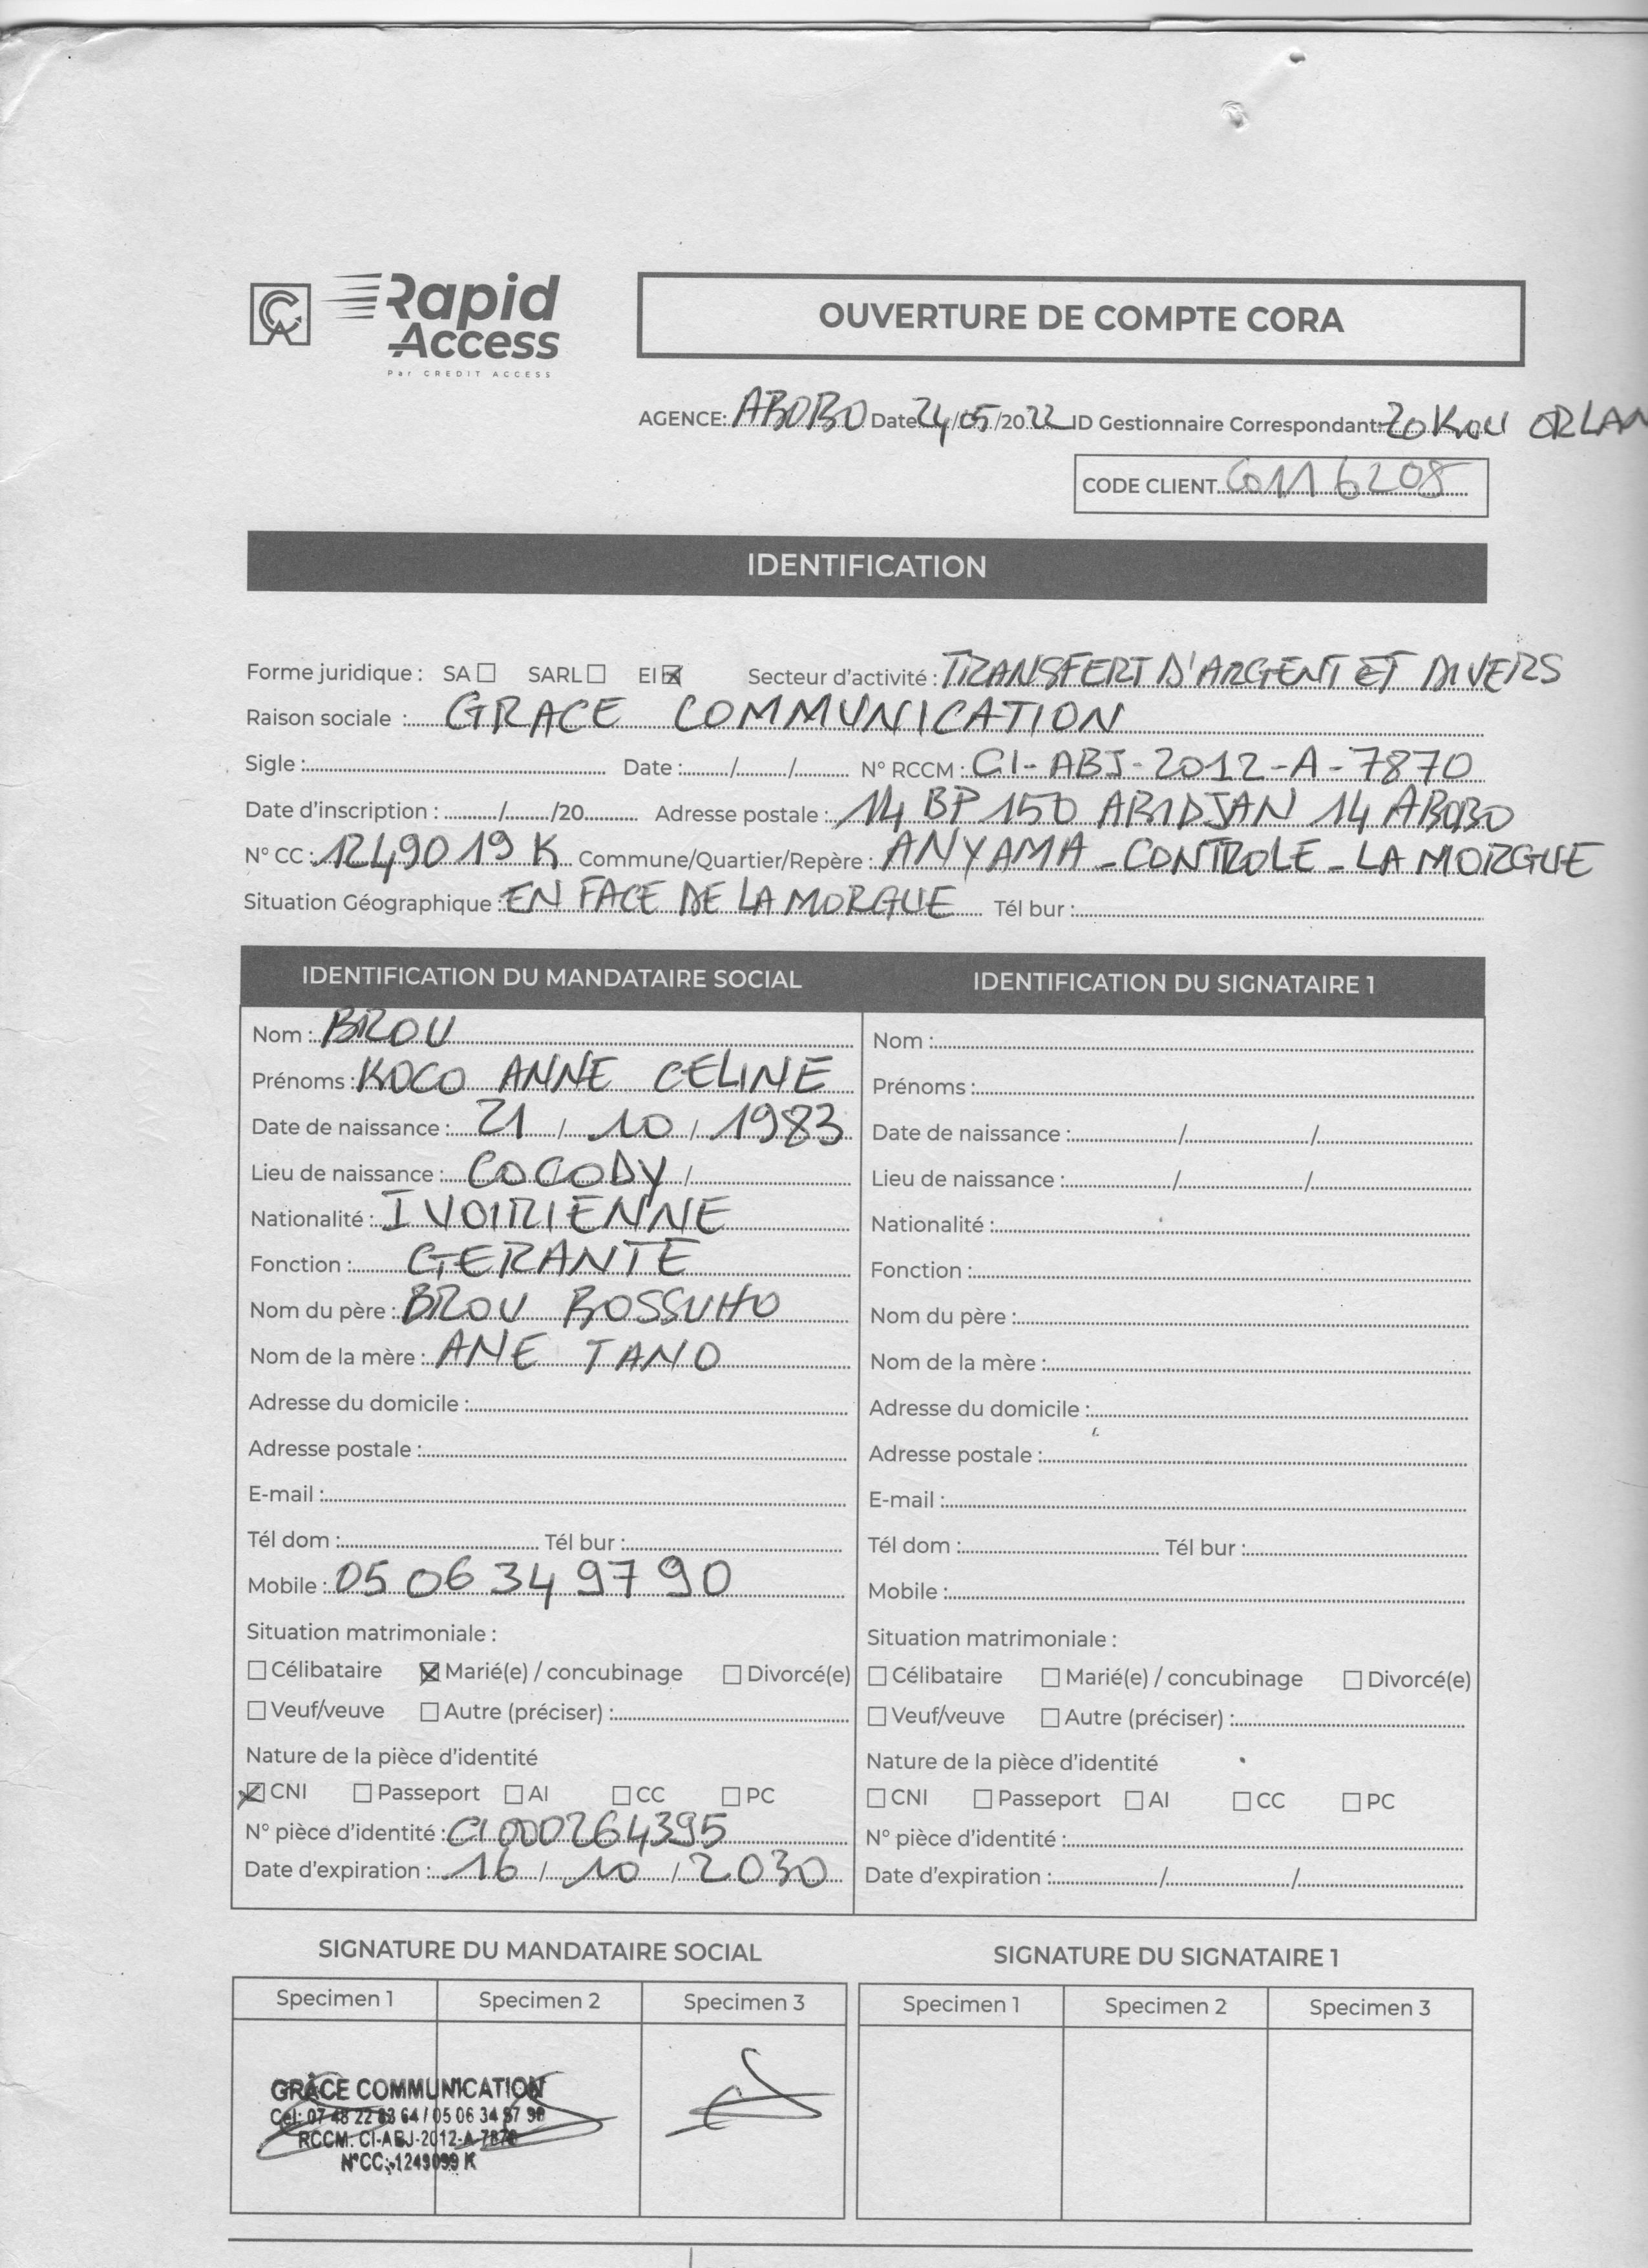 Rapid
Access
Par CREDIT ACCESS
OUVERTURE DE COMPTE CORA
AGENCE: ABOBO Date 24/05/2022 ID Gestionnaire Correspondant: ZOKOU ORLAN
CODE CLIENT C0116208
IDENTIFICATION
Forme juridique : SA ☐ SARL ☐ EI ☒ Secteur d'activité : TRANSFERT D'ARGENT ET DIVERS
Raison sociale : GRACE COMMUNICATION
Sigle : Date : / / N° RCCM : CI-ABJ-2012-A-7870
Date d'inscription : / /20 Adresse postale : 14 BP 150 ABIDJAN 14 ABOBO
N° CC : 1249019 K Commune/Quartier/Repère : ANYAMA-CONTROLE-LA MORGUE
Situation Géographique : EN FACE DE LA MORGUE Tél bur :
IDENTIFICATION DU MANDATAIRE SOCIAL
Nom : BROU
Prénoms : KOCO ANNE CELINE
Date de naissance : 21 / 10 / 1983
Lieu de naissance : COCODY /
Nationalité : IVOIRIENNE
Fonction : GERANTE
Nom du père : BROU BOSSUHO
Nom de la mère : ANE TANO
Adresse du domicile :
Adresse postale :
E-mail :
Tél dom : Tél bur :
Mobile : 05 06 34 97 90
Situation matrimoniale :
☐ Célibataire ☒ Marié(e) / concubinage ☐ Divorcé(e)
☐ Veuf/veuve ☐ Autre (préciser) :
Nature de la pièce d'identité
☒ CNI ☐ Passeport ☐ AI ☐ CC ☐ PC
N° pièce d'identité : CI000264395
Date d'expiration : 16 / 10 / 2030
IDENTIFICATION DU SIGNATAIRE 1
Nom :
Prénoms :
Date de naissance : / /
Lieu de naissance : / /
Nationalité :
Fonction :
Nom du père :
Nom de la mère :
Adresse du domicile :
Adresse postale :
E-mail :
Tél dom : Tél bur :
Mobile :
Situation matrimoniale :
☐ Célibataire ☐ Marié(e) / concubinage ☐ Divorcé(e)
☐ Veuf/veuve ☐ Autre (préciser) :
Nature de la pièce d'identité
☐ CNI ☐ Passeport ☐ AI ☐ CC ☐ PC
N° pièce d'identité :
Date d'expiration : / /
SIGNATURE DU MANDATAIRE SOCIAL
Specimen 1 Specimen 2 Specimen 3
GRÂCE COMMUNICATION
Cel: 07 48 22 64 / 05 06 34 97 90
RCCM: CI-ABJ-2012-A-7870
N°CC: K
SIGNATURE DU SIGNATAIRE 1
Specimen 1 Specimen 2 Specimen 3